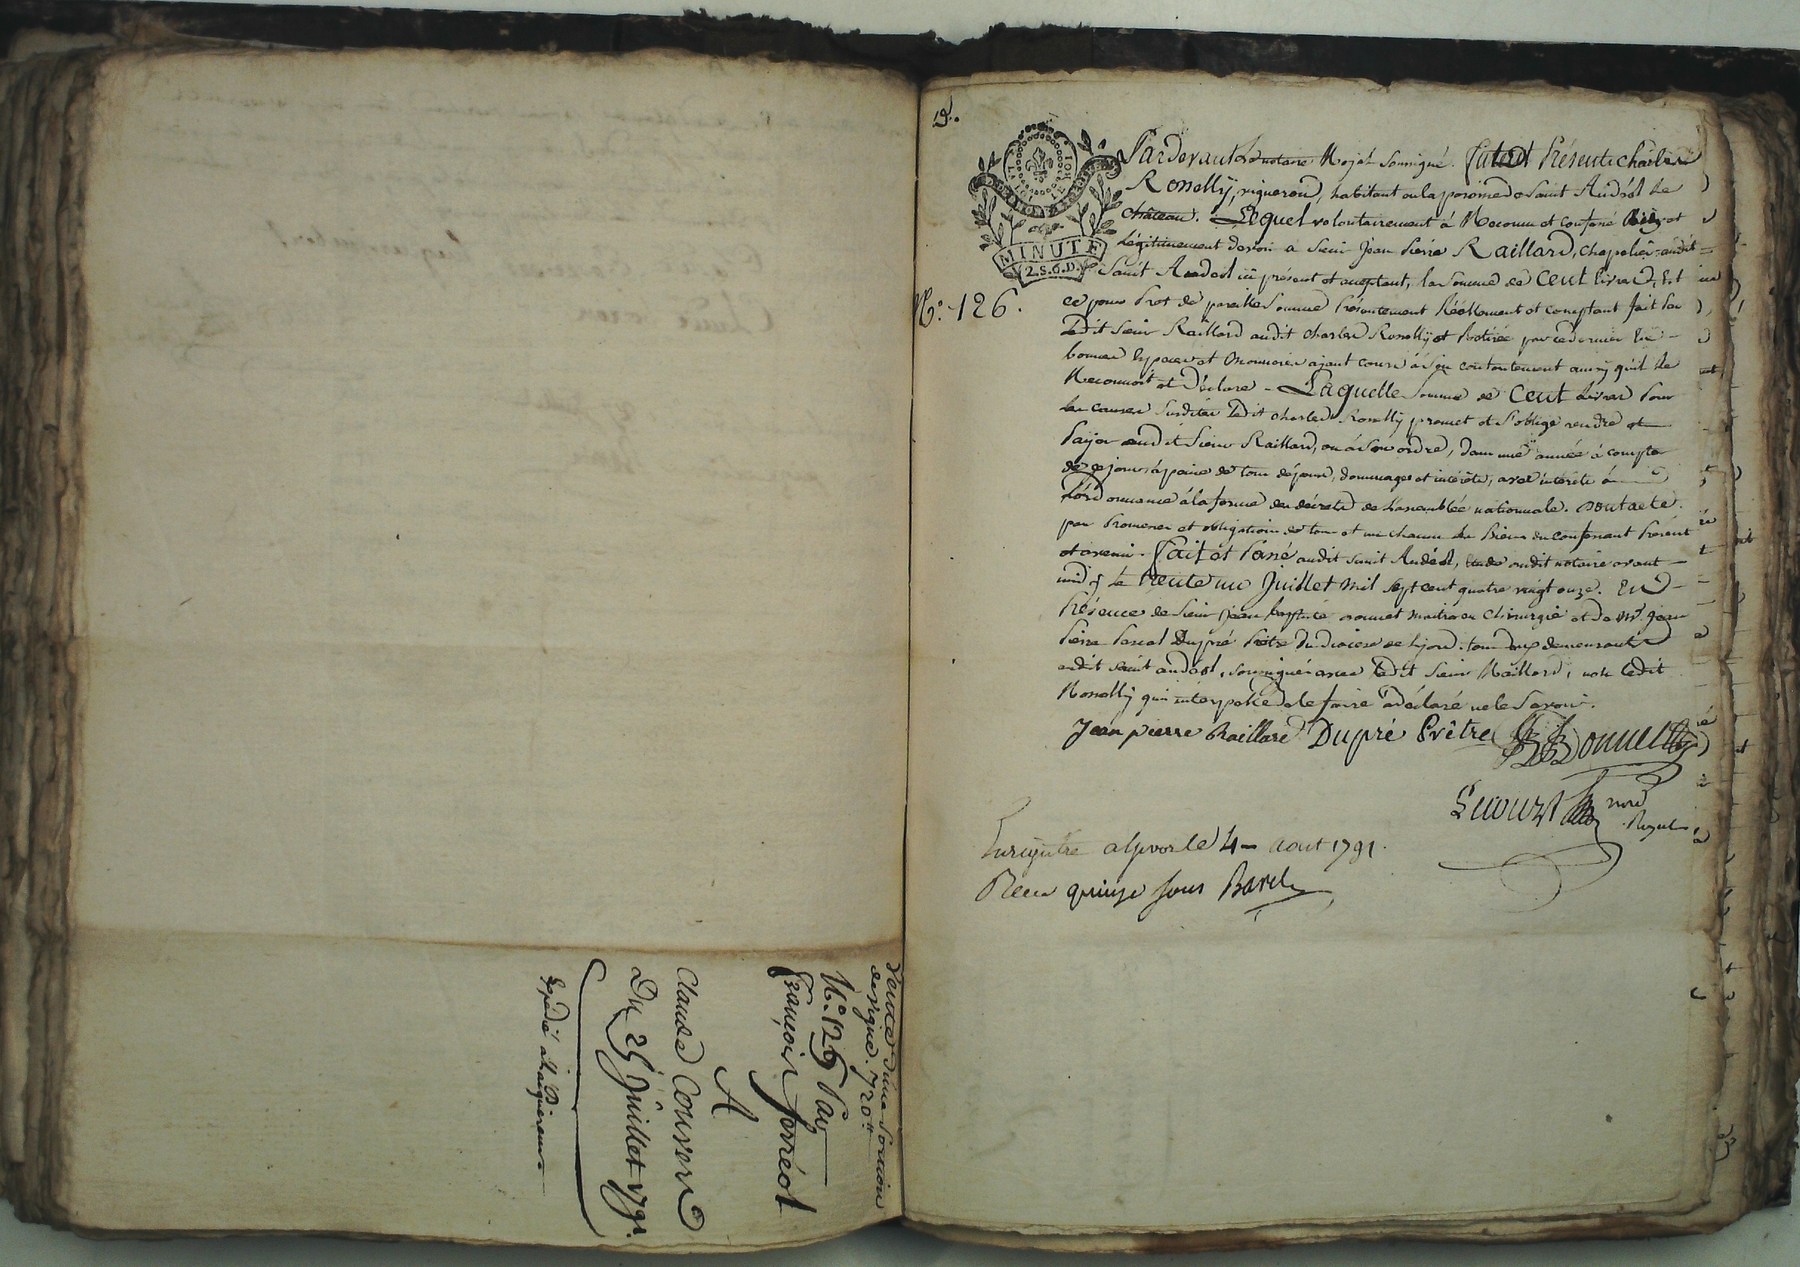 Vente d'une portion
de vigne. 720ᵗᵗ
N.° 125 Par
François ferréol
A
Claude Couvert
Du 25 Juillet 1791.
Expédié à l'acquereur
LA LOI LE ROI
MINUTE
2.S.6.D.
N.° 126.
Pardevant le notaire Royal soussigné. fut Présent Charles
Rosselly, vigneron, habitant en la paroisse de Saint Andéol le
château. Lequel volontairement à Reconnu et confessé et
légitimement devoir a sieur Jean Pierre Raillard, chapelier audit
Saint Andéol ici présent et acceptant, la somme de Cent livres, Et
ce pour Prêt de pareille Somme Présentement Réellement et comptant fait par
ledit sieur Raillard audit charles Rosselly et Retirée par ce dernier En
bonnes Espèces et Monnoies ayant cours à son contentement ainsy qu'il le
Reconnoit et Déclare - Laquelle somme de Cent livres Pour
les causes Susdites ledit charles Rosselly promet et s'oblige rendre et
Païer audit sieur Raillard, ou à son ordre, dans une année à compter
de ce jour à peine de tous dépens, dommages et intérêts, avec intérêts
l'ordonnance à la forme des décrets de l'assemblée nationnale. Dont acte.
par Promesses et obligations de tous et un chacun les Biens du confessant Présent
et avenir. fait et Passé audit saint Andéol, étude dudit notaire avant
midi le trente un Juillet mil sept cent quatre vingt onze. En
Présence de sieur Jean Baptiste Donnet maitre en Chirurgie et de Mʳ Jean
Pierre Pascal Dupré Prêtre du diocèse de Lyon. tous deux demeurants
audit saint andéol, soussignés avec ledit sieur Raillard, non ledit
Rosselly qui interpellé de le faire a déclaré ne le Savoir.
Jean pierre Raillard Dupré Prêtre Donnet
Lecourt noʳᵉ
Royal
Enregistré a givors le 4 aout 1791.
Reçu quinze sous Barel